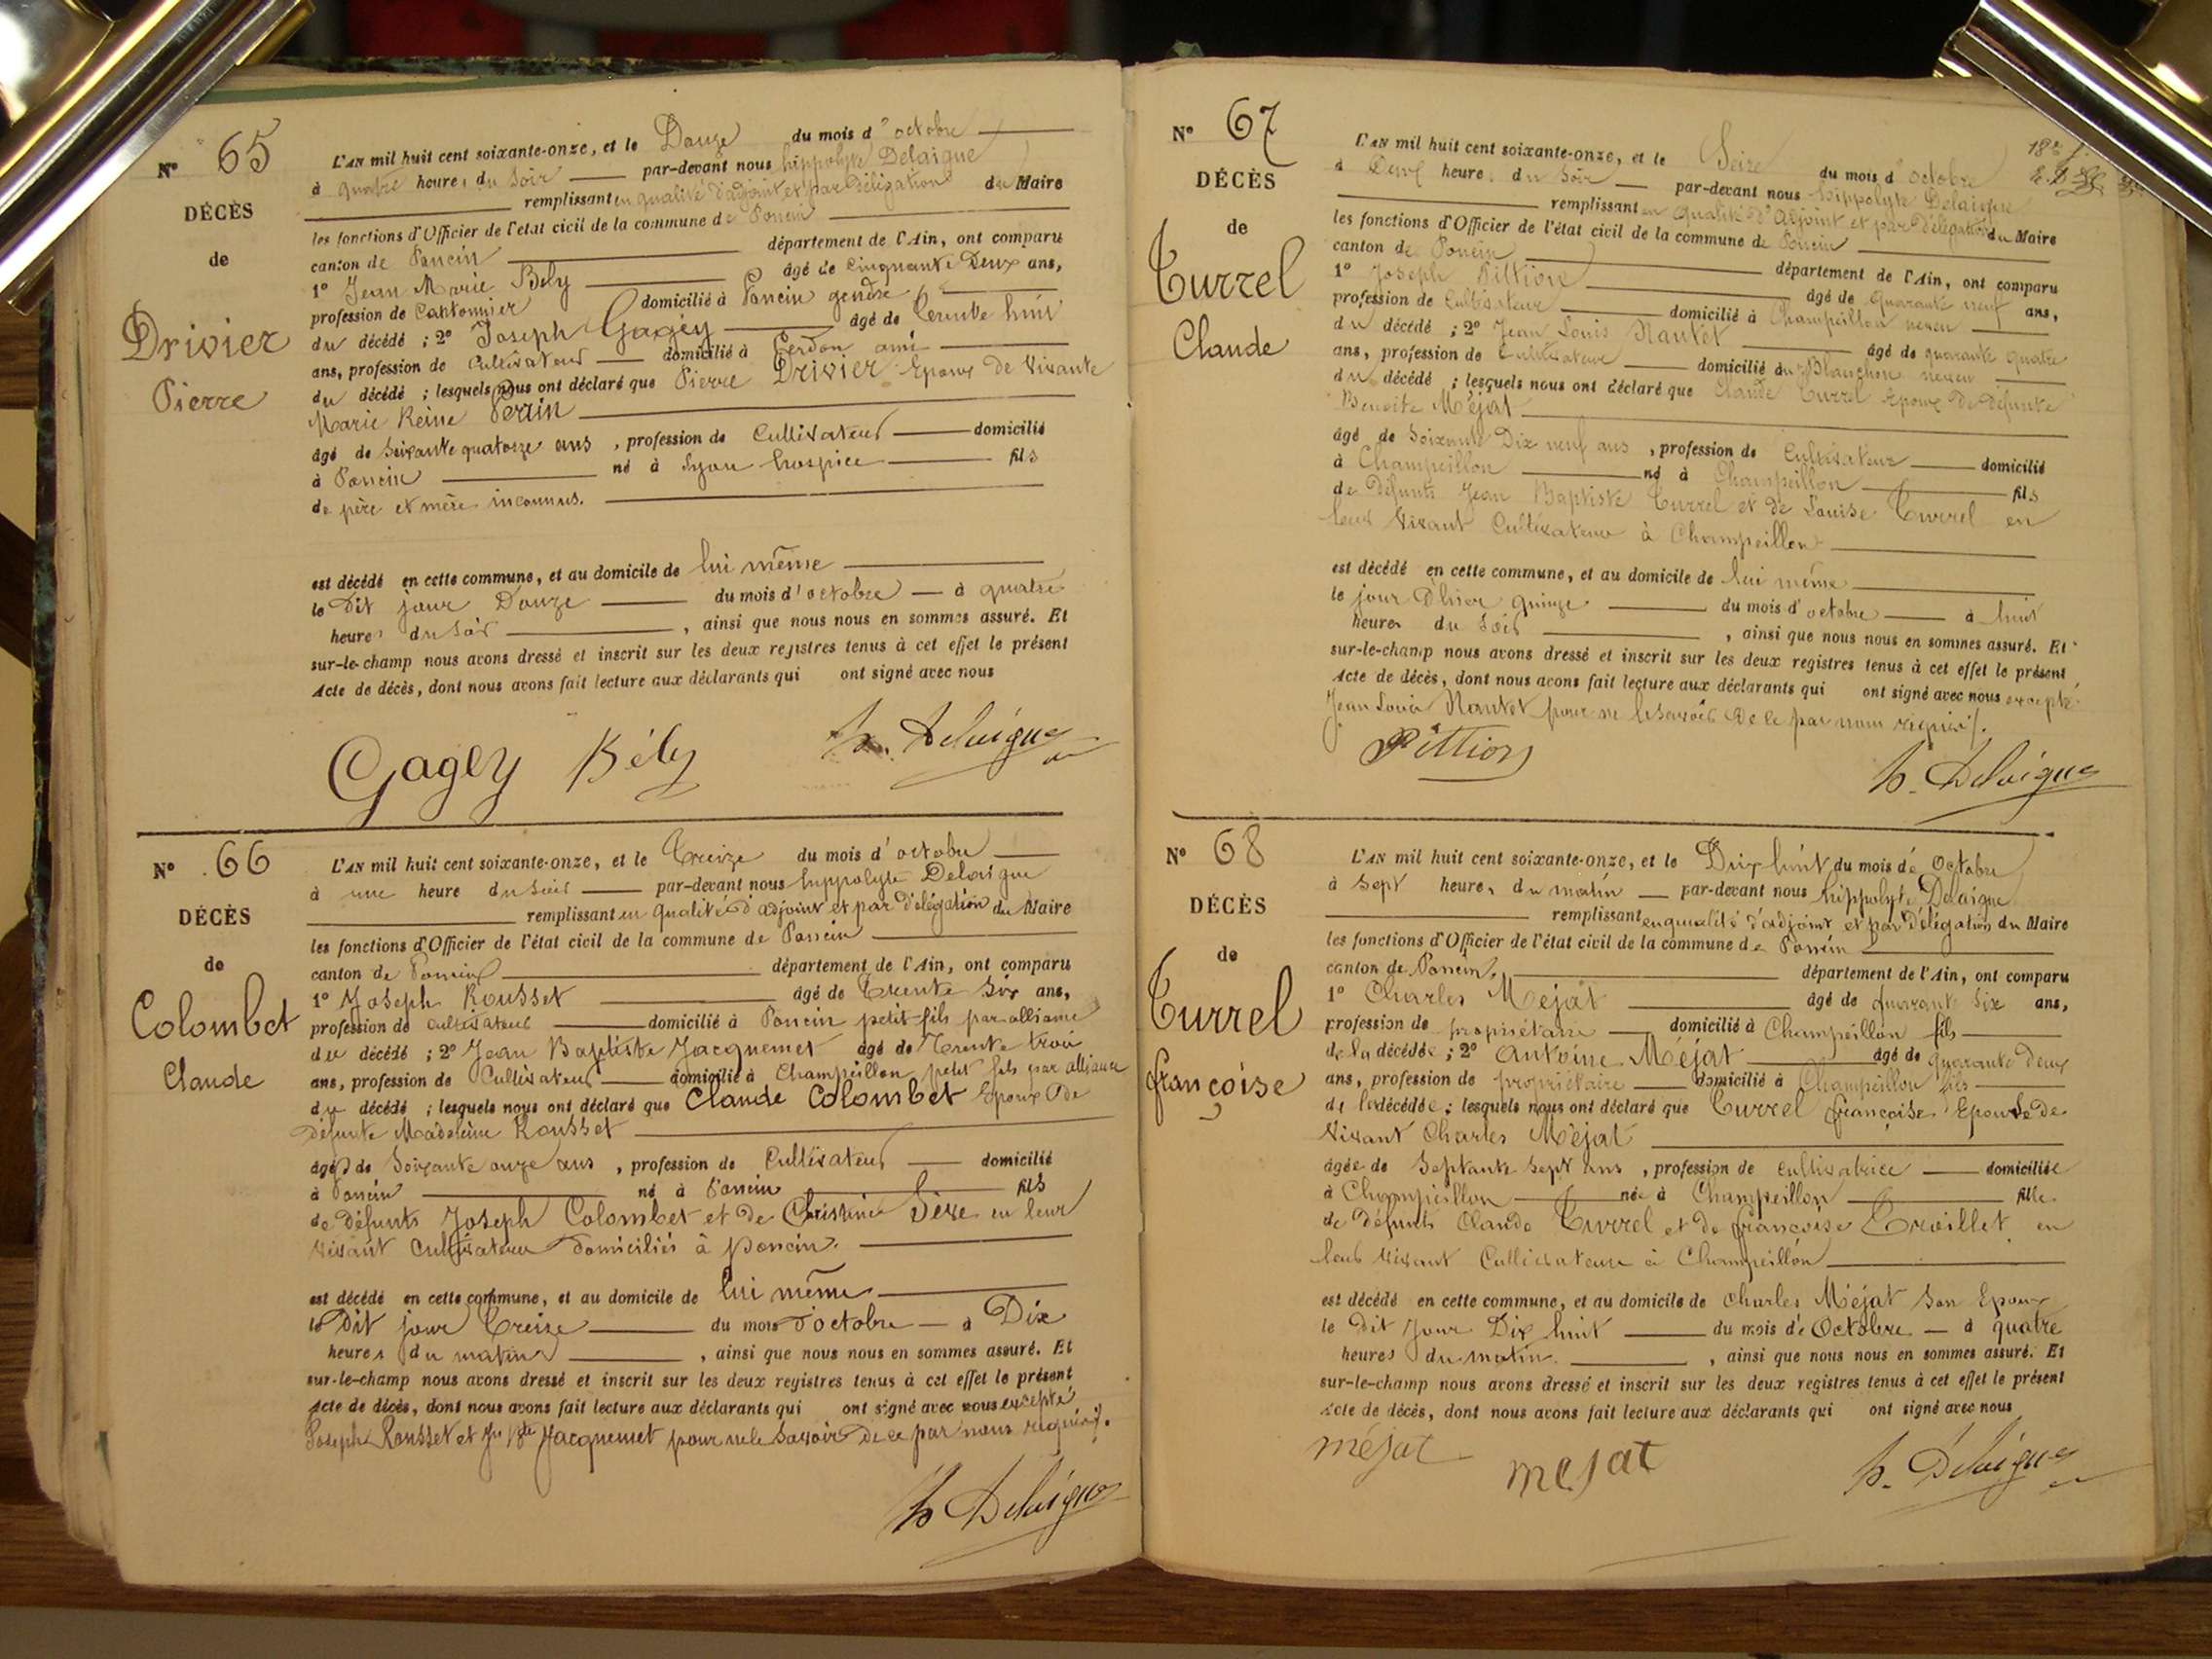 N° 65
DÉCÈS
de
Drivier
Pierre
L'AN mil huit cent soixante-onze, et le Douze du mois d'octobre
à quatre heures du soir par-devant nous hippolyte Delaigue
remplissant en qualité d'adjoint et par délégation du Maire
les fonctions d'Officier de l'état civil de la commune de Poncin
canton de Poncin département de l'Ain, ont comparu
1° Jean Marie Bély âgé de Cinquante Deux ans,
profession de Cantonnier domicilié à Poncin gendre
du décédé ; 2° Joseph Gagey âgé de Trente huit
ans, profession de Cultivateur domicilié à Cerdon ami
du décédé ; lesquels nous ont déclaré que Pierre Drivier Epoux de vivante
Marie Reine Perrin
âgé de Soixante quatorze ans, profession de Cultivateur domicilié
à Poncin né à Lyon hospice fils
de père et mère inconnus.
est décédé en cette commune, et au domicile de lui même
le Dit jour Douze du mois d'octobre à quatre
heures du soir, ainsi que nous nous en sommes assuré. Et
sur-le-champ nous avons dressé et inscrit sur les deux registres tenus à cet effet le présent
Acte de décès, dont nous avons fait lecture aux déclarants qui ont signé avec nous
Gagey Bély h. Delaigue
N° 66
DÉCÈS
de
Colombet
Claude
L'AN mil huit cent soixante-onze, et le Treize du mois d'octobre
à une heure du soir par-devant nous hippolyte Delaigue
remplissant en qualité d'adjoint et par délégation du Maire
les fonctions d'Officier de l'état civil de la commune de Poncin
canton de Poncin département de l'Ain, ont comparu
1° Joseph Rousset âgé de Trente Six ans,
profession de Cultivateur domicilié à Poncin petit-fils par alliance
du décédé ; 2° Jean Baptiste Jacquemet âgé de Trente trois
ans, profession de Cultivateur domicilié à Champeillon petit fils par alliance
du décédé ; lesquels nous ont déclaré que Claude Colombet Epoux De
défunte Madeleine Rousset
âgé de Soixante onze ans, profession de Cultivateur domicilié
à Poncin né à Poncin fils
de défunts Joseph Colombet et de Christine Sève en leur
vivant Cultivateurs domiciliés à Poncin.
est décédé en cette commune, et au domicile de lui même
le Dit jour Treize du mois d'octobre à Dix
heures du matin, ainsi que nous nous en sommes assuré. Et
sur-le-champ nous avons dressé et inscrit sur les deux registres tenus à cet effet le présent
Acte de décès, dont nous avons fait lecture aux déclarants qui ont signé avec nous excepté
Joseph Rousset et Jn Bte Jacquemet pour ne le savoir de ce par nous requis.
h Delaigue
N° 67
DÉCÈS
de
Turrel
Claude
L'AN mil huit cent soixante-onze, et le Seize du mois d'octobre
à Neuf heures du Soir par-devant nous hippolyte Delaigue
remplissant en qualité d'adjoint et par délégation du Maire
les fonctions d'Officier de l'état civil de la commune de Poncin
canton de Poncin département de l'Ain, ont comparu
1° Joseph Pittion âgé de quarante neuf ans,
profession de Cultivateur domicilié à Champeillon neveu
du décédé ; 2° Jean Louis Nantet âgé de quarante quatre
ans, profession de Cultivateur domicilié au Blanchon neveu
du décédé ; lesquels nous ont déclaré que Claude Turrel Epoux De défunte
Benoite Méjat
âgé de Soixante Dix neuf ans, profession de Cultivateur domicilié
à Champeillon né à Champeillon fils
de Défunts Jean Baptiste Turrel et de Louise Turrel en
leur vivant Cultivateurs à Champeillon
est décédé en cette commune, et au domicile de lui même
le jour D'hier quinze du mois d'octobre à huit
heures du Soir, ainsi que nous nous en sommes assuré. Et
sur-le-champ nous avons dressé et inscrit sur les deux registres tenus à cet effet le présent
Acte de décès, dont nous avons fait lecture aux déclarants qui ont signé avec nous excepté
Jean Louis Nantet pour ne le savoir De ce par nous requis.
Pittion
h. Delaigue
N° 68
DÉCÈS
de
Turrel
françoise
L'AN mil huit cent soixante-onze, et le Dix huit du mois de Octobre
à Sept heures du matin par-devant nous hippolyte Delaigue
remplissant en qualité d'adjoint et par délégation du Maire
les fonctions d'Officier de l'état civil de la commune de Poncin
canton de Poncin. département de l'Ain, ont comparu
1° Charles Méjat âgé de quarante Six ans,
profession de propriétaire domicilié à Champeillon fils
de la décédée ; 2° Antoine Méjat âgé de quarante deux
ans, profession de propriétaire domicilié à Champeillon fils
de la décédée ; lesquels nous ont déclaré que Turrel françoise Epouse de
vivant Charles Méjat
âgée de Septante Sept ans, profession de Cultivatrice domiciliée
à Champeillon née à Champeillon fille
de défunts Claude Turrel et de françoise Troillet en
leur vivant Cultivateurs à Champeillon
est décédé en cette commune, et au domicile de Charles Méjat Son Epoux
le Dit Jour Dix huit du mois de Octobre à quatre
heures du matin, ainsi que nous nous en sommes assuré. Et
sur-le-champ nous avons dressé et inscrit sur les deux registres tenus à cet effet le présent
Acte de décès, dont nous avons fait lecture aux déclarants qui ont signé avec nous
méjat mejat h. Delaigue